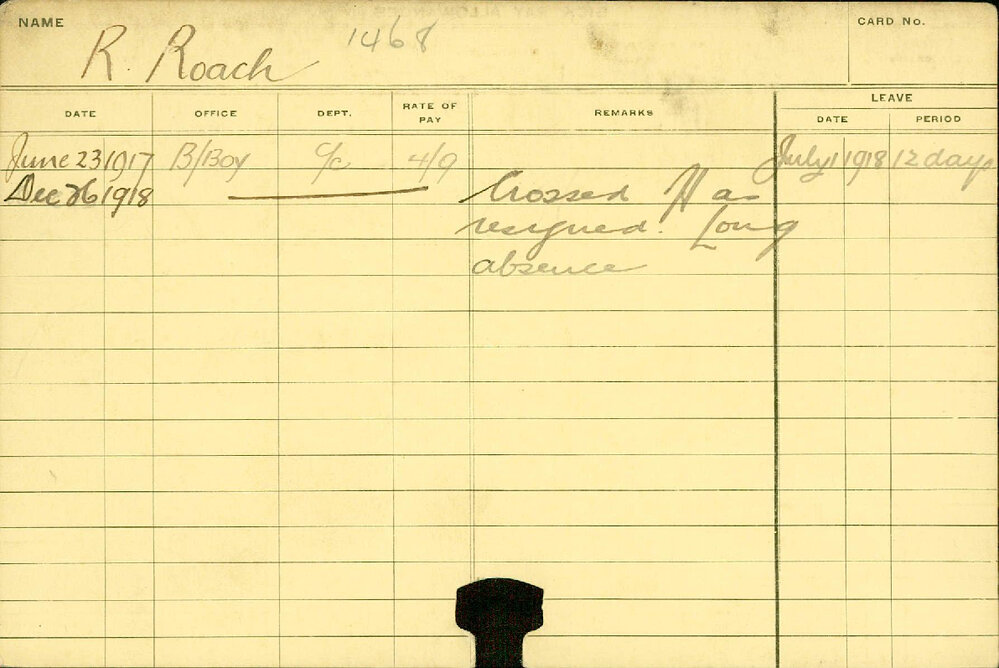 NAME
R. Roach 1468
CARD No.
DATE OFFICE DEPT. RATE OF PAY REMARKS LEAVE
DATE PERIOD
June 23 1917 B/Boy C/C 4/9 July 1 1918 12 days
Dec 26 1918 Crossed as
resigned. Long
absence